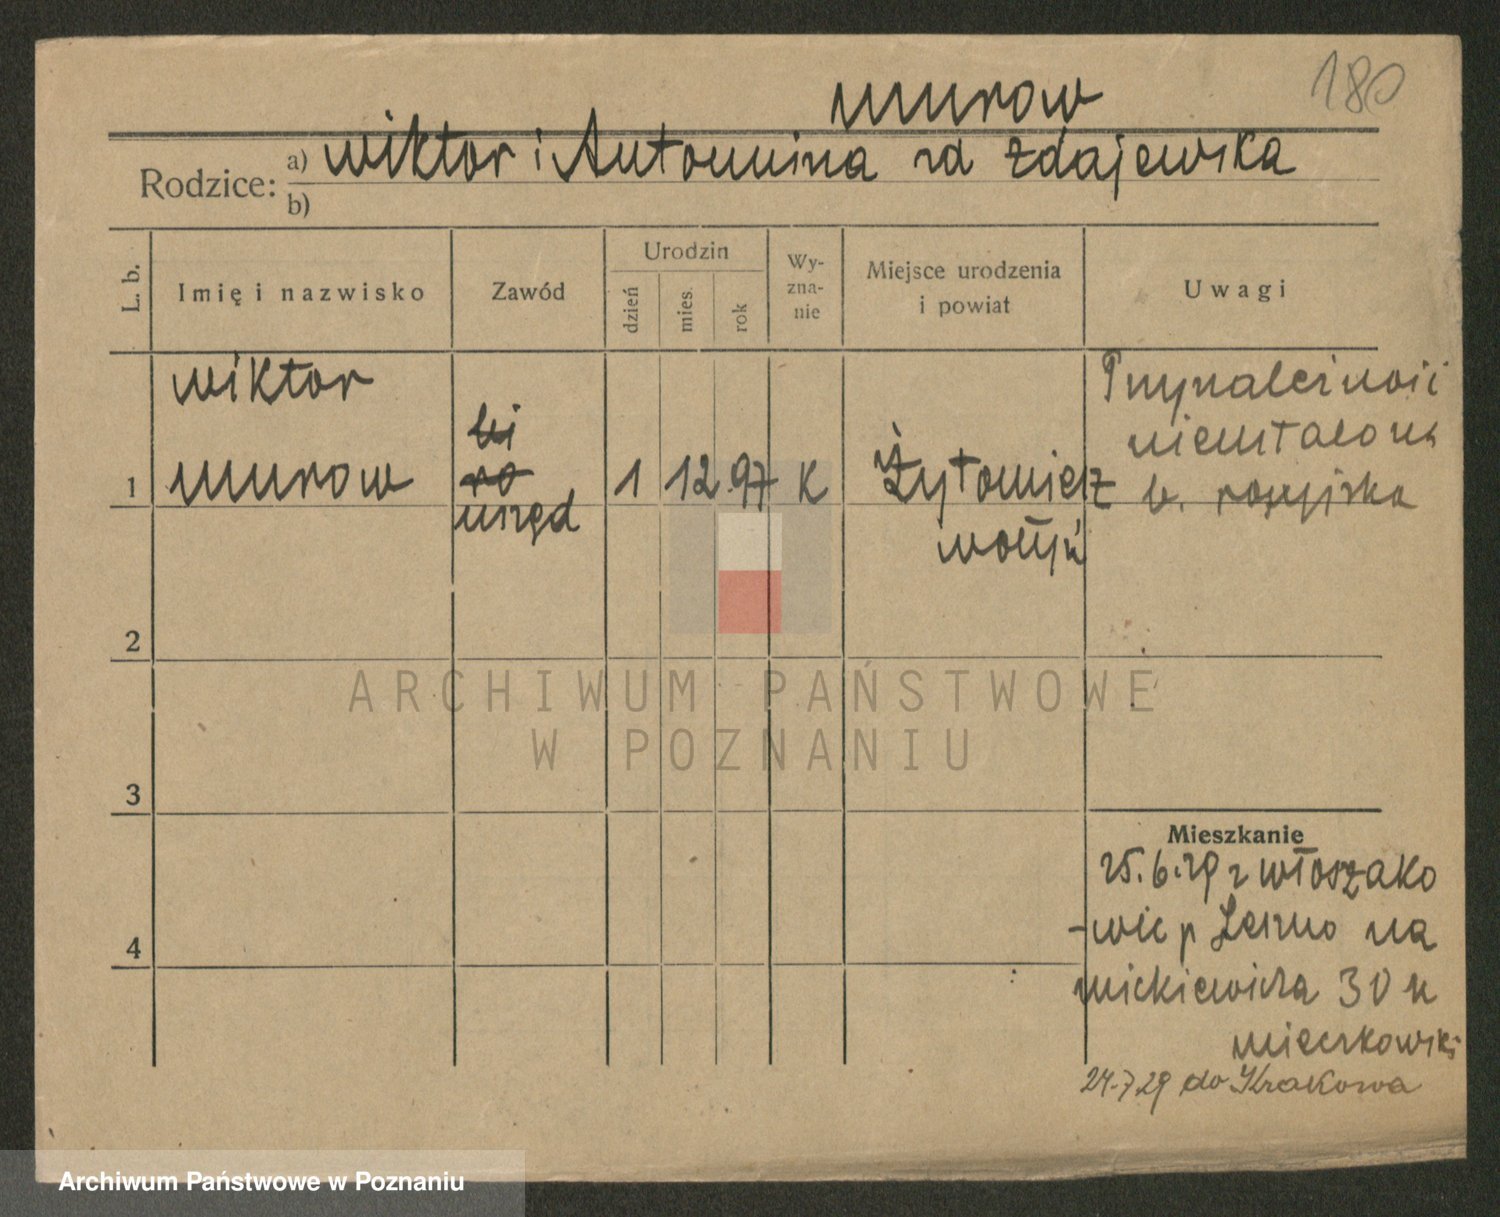 180
murow
Rodzice: a) wiktor i Antonina zd Zdajewska
b)
L. b.
Imię i nazwisko
Zawód
Urodzin
dzień
mies.
rok
Wy-
zna-
nie
Miejsce urodzenia
i powiat
Uwagi
wiktor
1 murow
bi
ro
urzęd
1 12 97 K
Żytomierz
wołyń
Przynależność
nieustalona
b. rosyjska
2
3
4
ARCHIWUM PAŃSTWOWE
W POZNANIU
Mieszkanie
25.6.29 z włoszako
-wic p Leszno na
mickiewicza 30 u
mieczkowski
24.7 29 do Krakowa
Archiwum Państwowe w Poznaniu